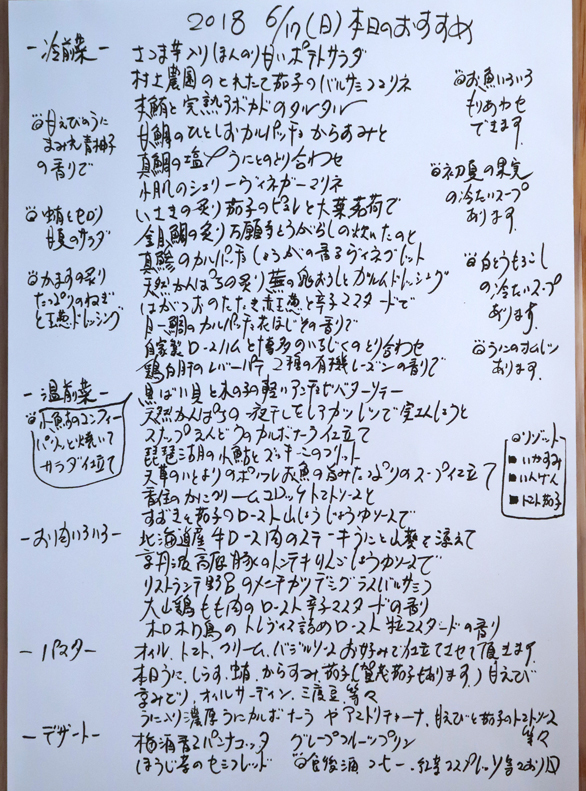 2018 6/17(日)本日のおすすめ
-冷前菜-
さつま芋入りほんのり甘いポテトサラダ
村上農園のとれたて茄子のバルサミコマリネ
本鮪と完熟アボカドのタルタル
甘鯛のひとしおカルパッチョからすみと
真鯛の塩〆うにとのとり合わせ
小肌のシェリーヴィネガーマリネ
いさきの炙り茄子のピュレと大葉茗荷で
金目鯛の炙り万願寺とうがらしの炊いたのと
真鯵のカルパッチョしょうがの香るヴィネグレット
天然かんぱちの炙り蕪の
はがつおのたたき玉葱と辛子マスタードで
のカルパッチョたたほじその香りで
自家製ロースハムと博多のいちじくのとり合わせ
鶏白肝のレバーパテ2種の有機レーズンの香りで
甘えびのうに
まみれ青柚子
の香りで
蛸とセロリ
甘夏のサラダ
かますの炙り
たっぷりのねぎ
と玉葱ドレッシング
お魚いろいろ
もりあわせ
できます。
初夏の果実
の冷たいスープ
あります。
白とうもろこし
の冷たいスープ
あります。
うにのオムレツ
あります。
-温前菜-
小鮎のコンフィー
パリッと焼いて
サラダ仕立て
ばい貝と木の子の軽いアンチョビバターソテー
天然かんぱちの一夜干しをしてカツレツで実山しょうと
スナップえんどうのカルボナーラ仕立て
琵琶湖の小鮎とズッキーニのフリット
天草のいとよりのポワレお魚の旨みたっぷりのスープ仕立て
香住のかにクリームコロッケトマトソースと
すずきと茄子のロースト山しょうじょうゆソースで
リゾット
■いかすみ
■いんげん
■トマト茄子
-お肉いろいろ-
北海道産牛ロース肉のステーキうにと山葵を添えて
京丹波高原豚のトンテキりんごしょうゆソースで
リストランテ野呂のメンチカツデミグラスバルサミコ
大山鶏もも肉のロースト辛子マスタードの香り
ホロホロ鳥のトレヴィス詰めロースト粒マスタードの香り
-パスター-
オイル、トマト、クリーム、バジルソースお好みで仕立てさせて頂きます。
本日うに、しらす、蛸、からすみ、茄子(賀茂茄子もあります)甘えび
オイルサーディン、三度豆等々
うに入り濃厚うにカルボナーラやアマトリチャーナ、甘えびと茄子のトマトソース
等々
-デザート-
梅酒香るパンナコッタ グレープフルーツプリン
ほうじ茶のセミフレッド 食後酒、コーヒー、紅茶、エスプレッソ等